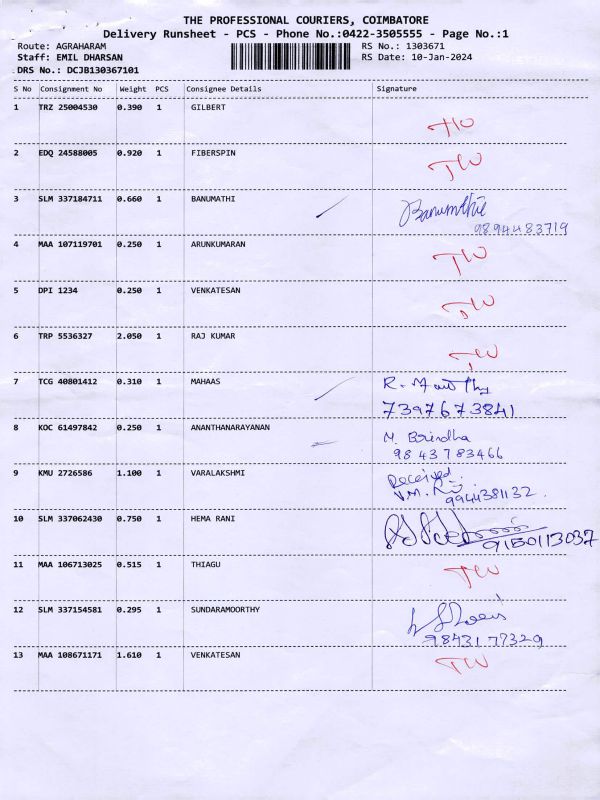 THE PROFESSIONAL COURIERS, COIMBATORE
Delivery Runsheet - PCS - Phone No.:0422-3505555 - Page No.:1
Route: AGRAHARAM RS No.: 1303671
Staff: EMIL DHARSAN RS Date: 10-Jan-2024
DRS No.: DCJB130367101
S No Consignment No Weight PCS Consignee Details Signature
1 TRZ 25004530 0.390 1 GILBERT
TW
2 EDQ 24588005 0.920 1 FIBERSPIN
TW
3 SLM 337184711 0.660 1 BANUMATHI
Banumathie
9894483719
4 MAA 107119701 0.250 1 ARUNKUMARAN
TW
5 DPI 1234 0.250 1 VENKATESAN
TW
6 TRP 5536327 2.050 1 RAJ KUMAR
TW
7 TCG 40801412 0.310 1 MAHAAS
R.
7397673841
8 KOC 61497842 0.250 1 ANANTHANARAYANAN
M. Brindha
9843783466
9 KMU 2726586 1.100 1 VARALAKSHMI
Received
V.M.
9944381132.
10 SLM 337062430 0.750 1 HEMA RANI
9150113037
11 MAA 106713025 0.515 1 THIAGU
TW
12 SLM 337154581 0.295 1 SUNDARAMOORTHY
9843177329
13 MAA 108671171 1.610 1 VENKATESAN
TW